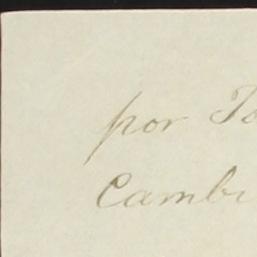 por To
Cambi